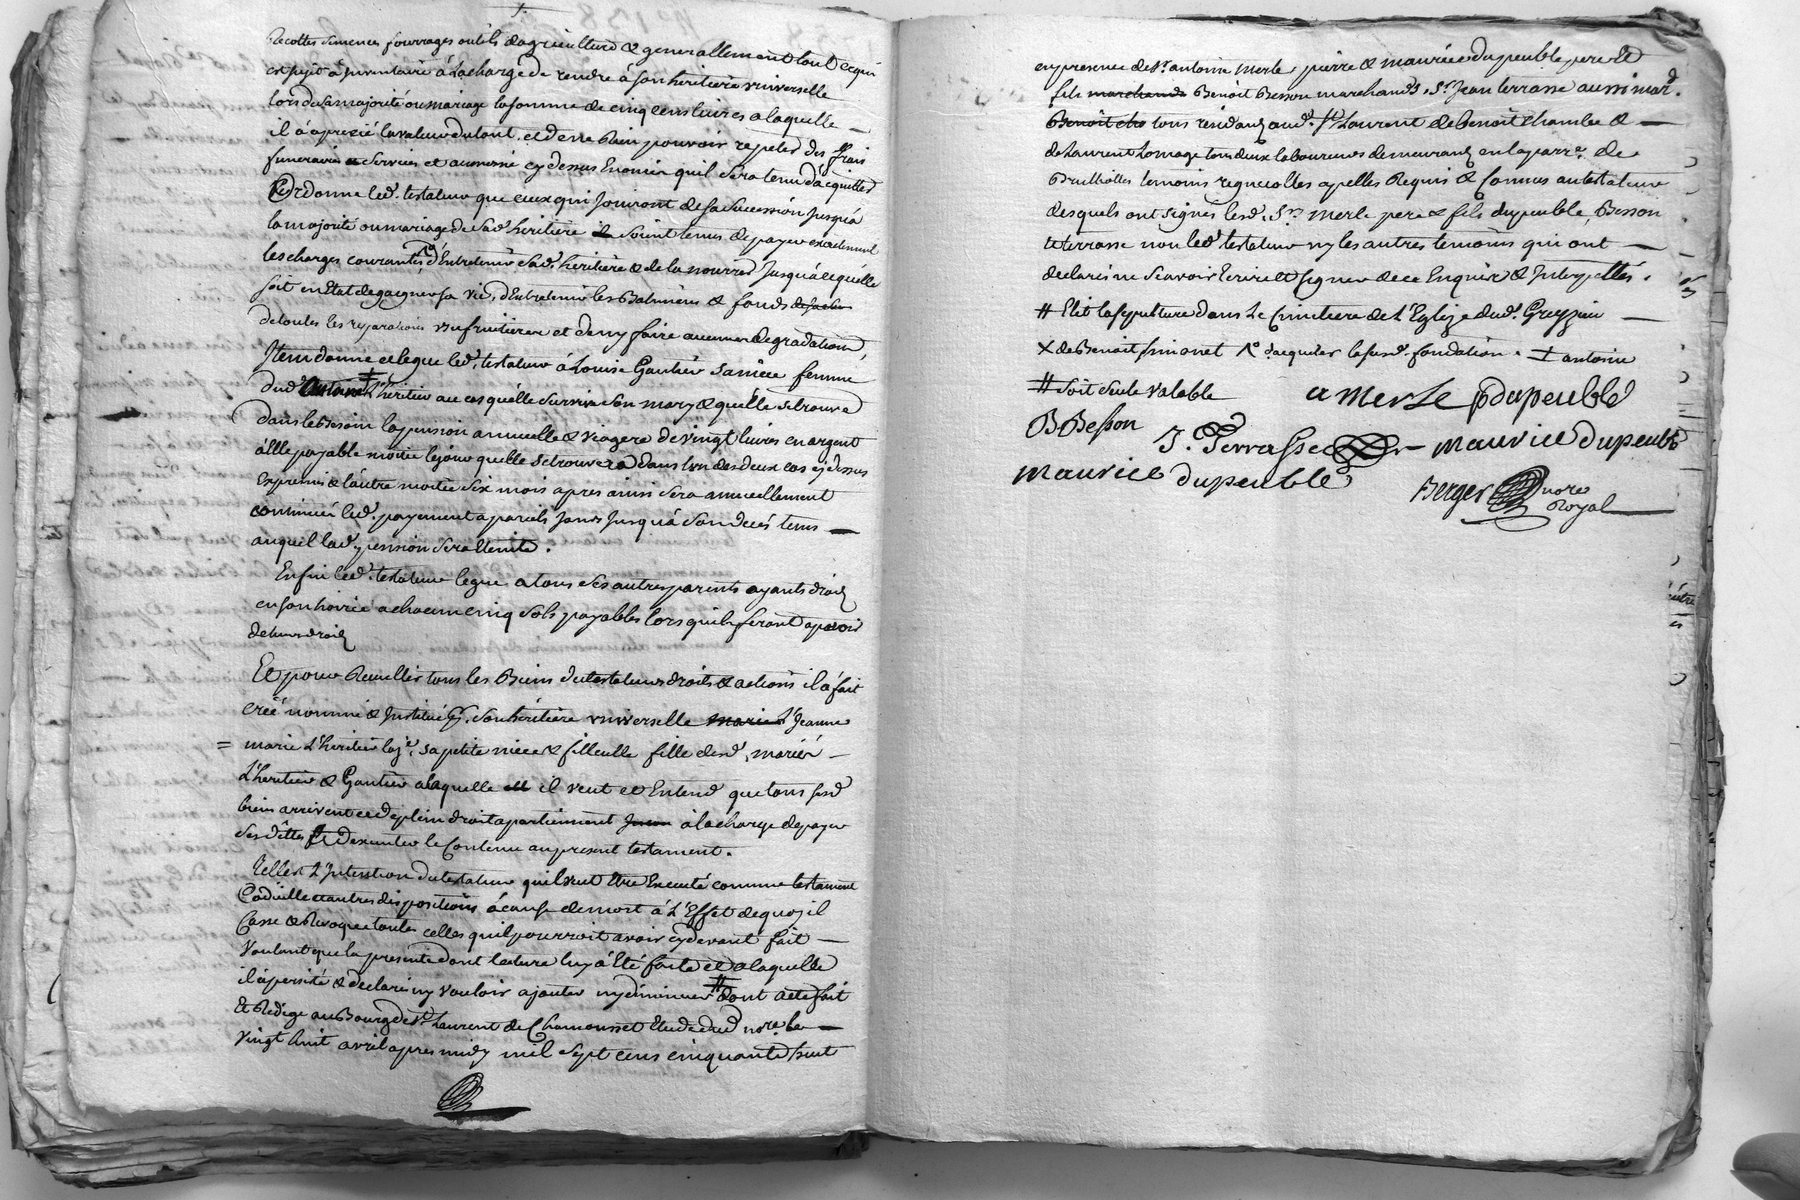 Recoltes semences fourrages outils d'agriculture & generallement tout ce qui
est sujet à inventaire à la charge de rendre à son heritiere universelle
lors de sa majorité ou mariage la somme de cinq cens livres a laquelle —
il à aprecié la valeur du tout, et de ne Rien pouvoir repeter des frais
funeraires et services et aumosne cy dessus Enoncés qu'il sera tenu d'acquitter
Ordonne led. testateur que ceux qui Jouiront de sa succession Jusqu'à
la majorité ou mariage de sad. heritiere soient tenus de payer exactement
les charges courantes, d'Entretenir sad. heritiere & de la nourrir Jusqu'à ce qu'elle
soit en Etat de gagner sa vie, d'Entretenir les Batiments & fonds
de toutes les reparations usufruitieres et de ny faire aucunes degradations,
Item donne et legue led. testateur à Louise Gautier sa niéce femme
dud. Antoine L'heritier au cas qu'elle survive son mary & qu'elle se trouve
dans le Besoin la pension annuelle & viagere de vingt livres en argent
à Elle payable moitié le jour quelle se trouvera dans l'un des deux cas cy dessus
exprimés & l'autre moitié six mois apres ainsi sera annuellement
continué led. payement a pareils jours Jusqu'à son decés tems —
auquel lad. pension sera Eteinte.
Enfin led. testateur legue a tous ses autres parents ayants droit
en son hoirie a chacun cinq sols payables lors qu'ils feront aparoir
de leurs droits
Et pour Recuillir tous les Biens du testateur droits & actions il à fait
créé nommé & Institué son heritiere universelle marie Jeanne
= marie L'heritier sa petite niece & filleulle fille desd. mariés —
L'heritier & Gautier a laquelle il veut et Entend que tous sesd.
biens arrivent et de plein droit apartiennent à la charge de payer
ses dettes & d'executer le Contenu au present testament.
Telle est L'Intention du testateur qu'il veut Etre Executé comme testament
Codicille et autres dispositions à cause de mort à L'Effet de quoy il
Casse & Revoque toutes celles qu'il pourroit avoir cy devant fait —
Voulant que la presente dont lecture luy à Eté faite et a laquelle
il à persisté & declaré ny vouloir ajouter ny diminuer # dont acte fait
Et Redigé au Bourg de St. Laurent de Chamousset Etude dud. nore. le —
vingt huit avril apres midy mil sept cens cinquante huit
en presence de Sr. antoine merle pierre & maurice dupeuble pere &
fils marchands Benoit Besson marchands, Sr. Jean terrasse aussi mard.
tous residants aud. St. Laurent de Benoit Chambe & —
de Laurent Lomage tous deux laboureurs demeurants en la parre. de
Brulliolles temoins requis & Connus au testateur
desquels ont signés lesd. Srs. merle pere & fils dupeuble, Besson
& terrasse non led. testateur ny les autres temoins qui ont —
declarés ne scavoir Ecrire et signer de ce Enquis & Interpellés.
# Elit la sepulture dans Le Cimitiere de L'Eglise dud. Grezieu —
X de Benoit simonet d'acquiter lasusd. fondation. ‡ antoine
# soit seule valable
a merle pdupeuble
B Besson
J. Terrasse maurice dupeuble
maurice dupeuble
Berger nore
Royal